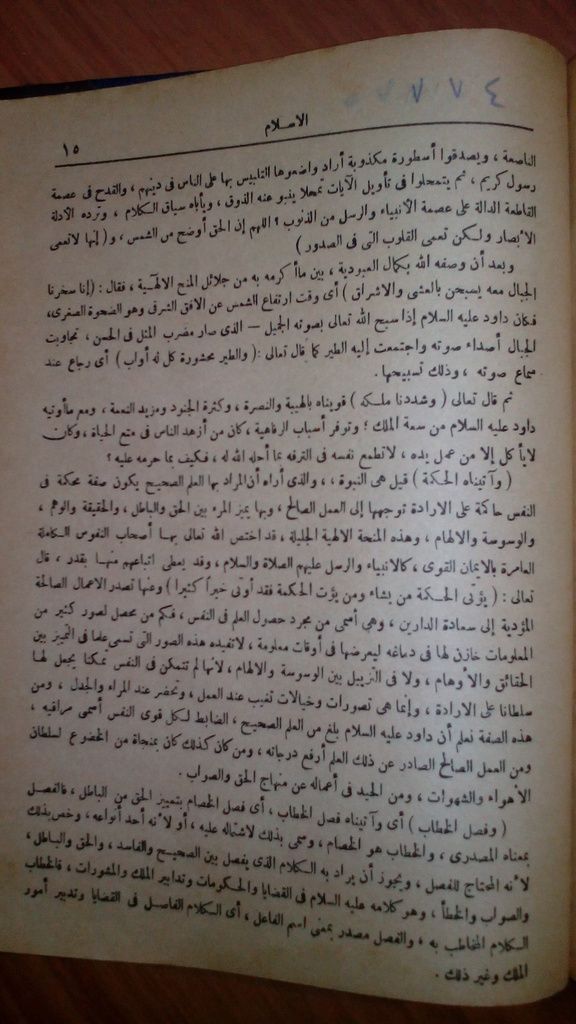 ٧ ٧ ٤
الاسلام
١٥
الناصعة ، ويصدقوا أسطورة مكذوبة أراد واضعوها التلبيس بها على الناس فى دينهم ، والقدح فى عصمة
رسول كريم ، ثم يتمحلوا فى تأويل الآيات تمحلا ينبو عنه الذوق ، ويأباه سياق الكلام ، وترده الأدلة
القاطعة الدالة على عصمة الأنبياء والرسل من الذنوب ؟ اللهم إن الحق أوضح من الشمس ، و( إنها لاتعمى
الأبصار ولكن تعمى القلوب التى فى الصدور )
وبعد أن وصفه الله بكمال العبودية ، بين ماأكرمه به من جلائل المنح الالهية ، فقال : (إنا سخرنا
الجبال معه يسبحن بالعشى والاشراق ) أى وقت ارتفاع الشمس عن الافق الشرقى وهو الضحوة الصغرى،
فكان داود عليه السلام إذا سبح الله تعالى بصوته الجميل — الذى صار مضرب المثل فى الحسن ، تجاوبت
الجبال أصداء صوته واجتمعت إليه الطير كما قال تعالى :( والطير محشورة كل له أواب ) أى رجاع عند
سماع صوته ، وذلك تسبيحها .
ثم قال تعالى ( وشددنا ملكه ) قويناه بالهيبة والنصرة ، وكثرة الجنود ومزيد النعمة ، ومع ماأوتيه
داود عليه السلام من سعة الملك ؛ وتوفر أسباب الرفاهية ، كان من أزهد الناس فى متع الحياة ، وكان
لايأكل إلا من عمل يده ، لاتطمع نفسه فى الترفه بما أحله الله له ، فكيف بما حرمه عليه ؟
( وآتيناه الحكمة ) قيل هى النبوة ، ، والذى أراه أن المراد بها العلم الصحيح يكون صفة محكمة فى
النفس حاكمة على الارادة توجهها إلى العمل الصالح ، وبها يميز المرء بين الحق والباطل ، والحقيقة والوهم ،
والوسوسة والالهام ، وهذه المنحة الالهية الجليلة ، قد اختص الله تعالى بها أصحاب النفوس الكاملة
العامرة بالايمان القوى ، كالانبياء والرسل عليهم الصلاة والسلام ، وقد يعطى اتباعهم منها بقدر ، قال
تعالى : ( يؤتى الحكمة من يشاء ومن يؤت الحكمة فقد أوتى خيراً كثيرا ) وعنها تصدر الاعمال الصالحة
المؤدية إلى سعادة الدارين ، وهى أسمى من مجرد حصول العلم فى النفس ، فكم من محصل لصور كثير من
المعلومات خازن لها فى دماغه ليعرضها فى أوقات معلومة ، لاتفيده هذه الصور التى تسمى علما فى التمييز بين
الحقائق والأوهام ، ولا فى التزييل بين الوسوسة والالهام ، لأنها لم تتمكن فى النفس تمكنا يجعل لها
سلطانا على الارادة ، وإنما هى تصورات وخيالات تغيب عند العمل ، وتحضر عند المراء والجدل ، ومن
هذه الصفة نعلم أن داود عليه السلام بلغ من العلم الصحيح ، الضابط لكل قوى النفس أسمى مراقيه ،
ومن العمل الصالح الصادر عن ذلك العلم أرفع درجاته ، ومن كان كذلك كان بمنجاة من الخضوع لسلطان
الأهواء والشهوات ، ومن الحيد فى أعماله عن منهاج الحق والصواب .
( وفصل الخطاب ) أى وآتيناه فصل الخطاب ، أى فصل الخصام بتمييز الحق من الباطل ، فالفصل
بمعناه المصدرى ، والخطاب هو الخصام ، وسمى بذلك لاشتماله عليه ، أو لأنه أحد أنواعه ، وخص بذلك
لأنه المحتاج للفصل ، ويجوز أن يراد به الكلام الذى يفصل بين الصحيح والفاسد ، والحق والباطل،
والصواب والخطأ ، وهو كلامه عليه السلام فى القضايا والحكومات وتدابير الملك والمشورات ، فالخطاب
الكلام المخاطب به ، والفصل مصدر بمعنى اسم الفاعل ، أى الكلام الفاصل فى القضايا وتدبير أمور
الملك وغير ذلك .